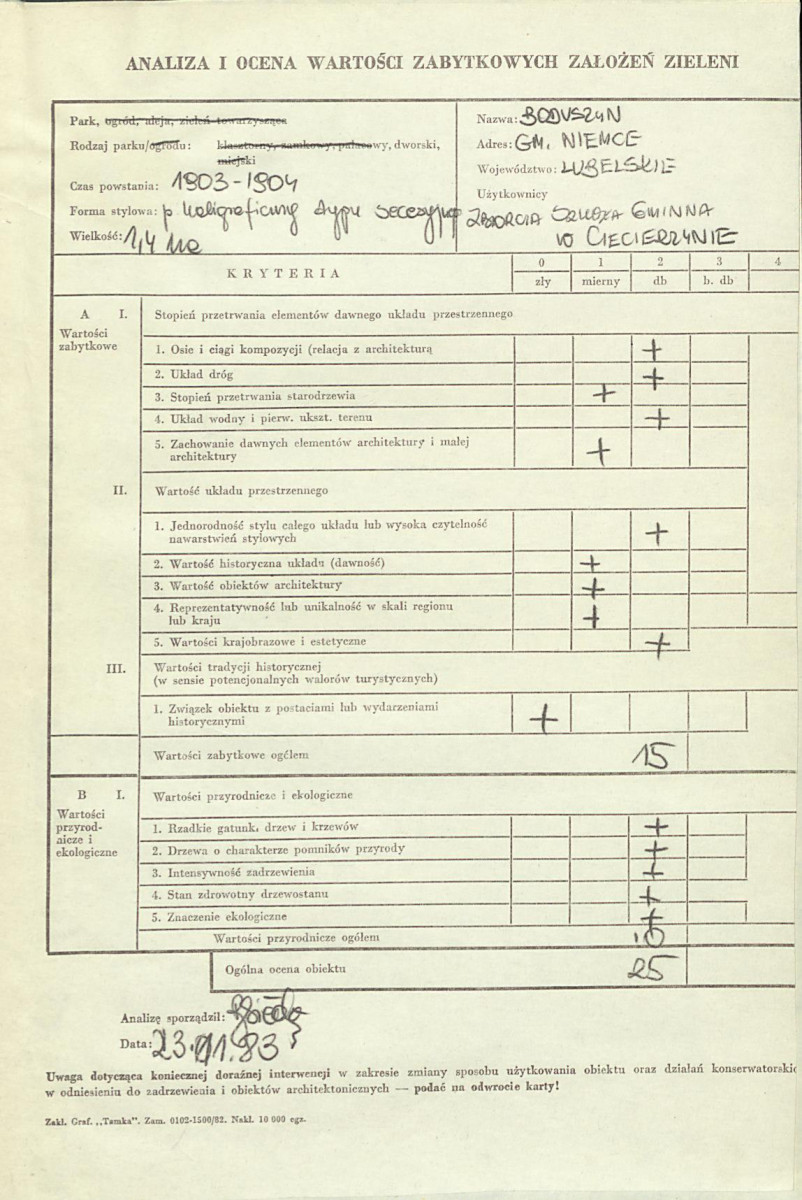 ANALIZA I OCENA WARTOŚCI ZABYTKOWYCH ZAŁOŻEŃ ZIELENI
Park, ogród, aleja, zieleń towarzysząca
Rodzaj parku/ogrodu: klasztorny, zamkowy, pałacowy, dworski,
miejski
Czas powstania: 1903-1904
Forma stylowa: p. kaligraficzny typu secesyjnego
Wielkość: 1,4 ha
Nazwa: BODUSZYN
Adres: GM. NIEMCE
Województwo: LUBELSKIE
Użytkownicy
ZBIORCZA SZKOŁA GMINNA
W CIECIERZYNIE
KRYTERIA
0 1 2 3 4
zły mierny db b. db
A I. Stopień przetrwania elementów dawnego układu przestrzennego
Wartości
zabytkowe
1. Osie i ciągi kompozycji (relacja z architekturą +
2. Układ dróg +
3. Stopień przetrwania starodrzewia +
4. Układ wodny i pierw. ukszt. terenu +
5. Zachowanie dawnych elementów architektury i małej
architektury +
II. Wartość układu przestrzennego
1. Jednorodność stylu całego układu lub wysoka czytelność
nawarstwień stylowych +
2. Wartość historyczna układu (dawność) +
3. Wartość obiektów architektury +
4. Reprezentatywność lub unikalność w skali regionu
lub kraju +
5. Wartości krajobrazowe i estetyczne +
III. Wartości tradycji historycznej
(w sensie potencjonalnych walorów turystycznych)
1. Związek obiektu z postaciami lub wydarzeniami
historycznymi +
Wartości zabytkowe ogółem 15
B I. Wartości przyrodnicze i ekologiczne
Wartości
przyrod-
nicze i
ekologiczne
1. Rzadkie gatunki drzew i krzewów +
2. Drzewa o charakterze pomników przyrody +
3. Intensywność zadrzewienia +
4. Stan zdrowotny drzewostanu +
5. Znaczenie ekologiczne +
Wartości przyrodnicze ogółem 10
Ogólna ocena obiektu 25
Analizę sporządził:
Data: 23.
Uwaga dotycząca koniecznej doraźnej interwencji w zakresie zmiany sposobu użytkowania obiektu oraz działań konserwatorskic
w odniesieniu do zadrzewienia i obiektów architektonicznych — podać na odwrocie karty!
Zakł. Graf. „Tamka". Zam. 0102-1500/82. Nakł. 10 000 egz.